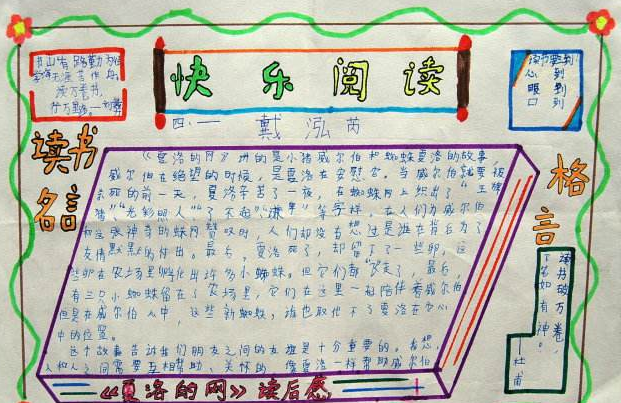 书山有路勤为径
学海无涯苦作舟
读万卷书,
行万里路。——刘彝
快乐阅读
读书要三到
心到
眼到
口到
四、一
戴泓芮
读书
名言
格言
《夏洛的网》讲的是小猪威尔伯和蜘蛛夏洛的故事,
威尔伯在绝望的时候,是夏洛在安慰它。当威尔伯就要被
杀死的前一天,夏洛辛苦了一夜,在蜘蛛网上织出了“王牌
猪”“光彩照人”“了不起”“谦卑”等字样。在人们为威尔伯
和这张神奇的蛛网赞叹时,人们却没有想过是谁在背后为了
友情默默的付出。最后,夏洛死了,却留下了一些卵,这
些卵在农场里孵化出许多小蜘蛛。但它们都飞走了,最后,
有三只小蜘蛛留在了农场里,它们在这里一起陪伴着威尔伯
但是在威尔伯心中,这些新蜘蛛,谁也取代不了夏洛在它心
中的位置。
这个故事告诉我们朋友之间的友谊是十分重要的。我想,
人和人之间需要互相帮助、关怀的,像夏洛一样帮助威尔伯
《夏洛的网》读后感
读书破万卷,
下笔如有神。
——杜甫